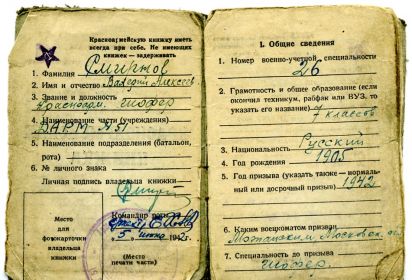 Красноармейскую книжку иметь
всегда при себе. Не имеющих
книжек — задерживать
1. Фамилия Смирнов
2. Имя и отчество Валерий
3. Звание и должность
Красноарм. шофер
4. Наименование части (учреждения)
5. Наименование подразделения (батальон,
рота)
6. № личного знака
Личная подпись владельца книжки
Место
для
фотокарточки
владельца
книжки
Командир
5 1942 г.
Место
печати части
I. Общие сведения
1. Номер военно-учетной специальности
26
2. Грамотность и общее образование (если
окончил техникум, рабфак или ВУЗ, то
указать его название) 7 классов
3. Национальность Русский
4. Год рождения 1905
5. Год призыва (указать также — нормаль-
ный или досрочный призыв) 1942
6. Каким военкоматом призван
7. Специальность до призыва
Шофер